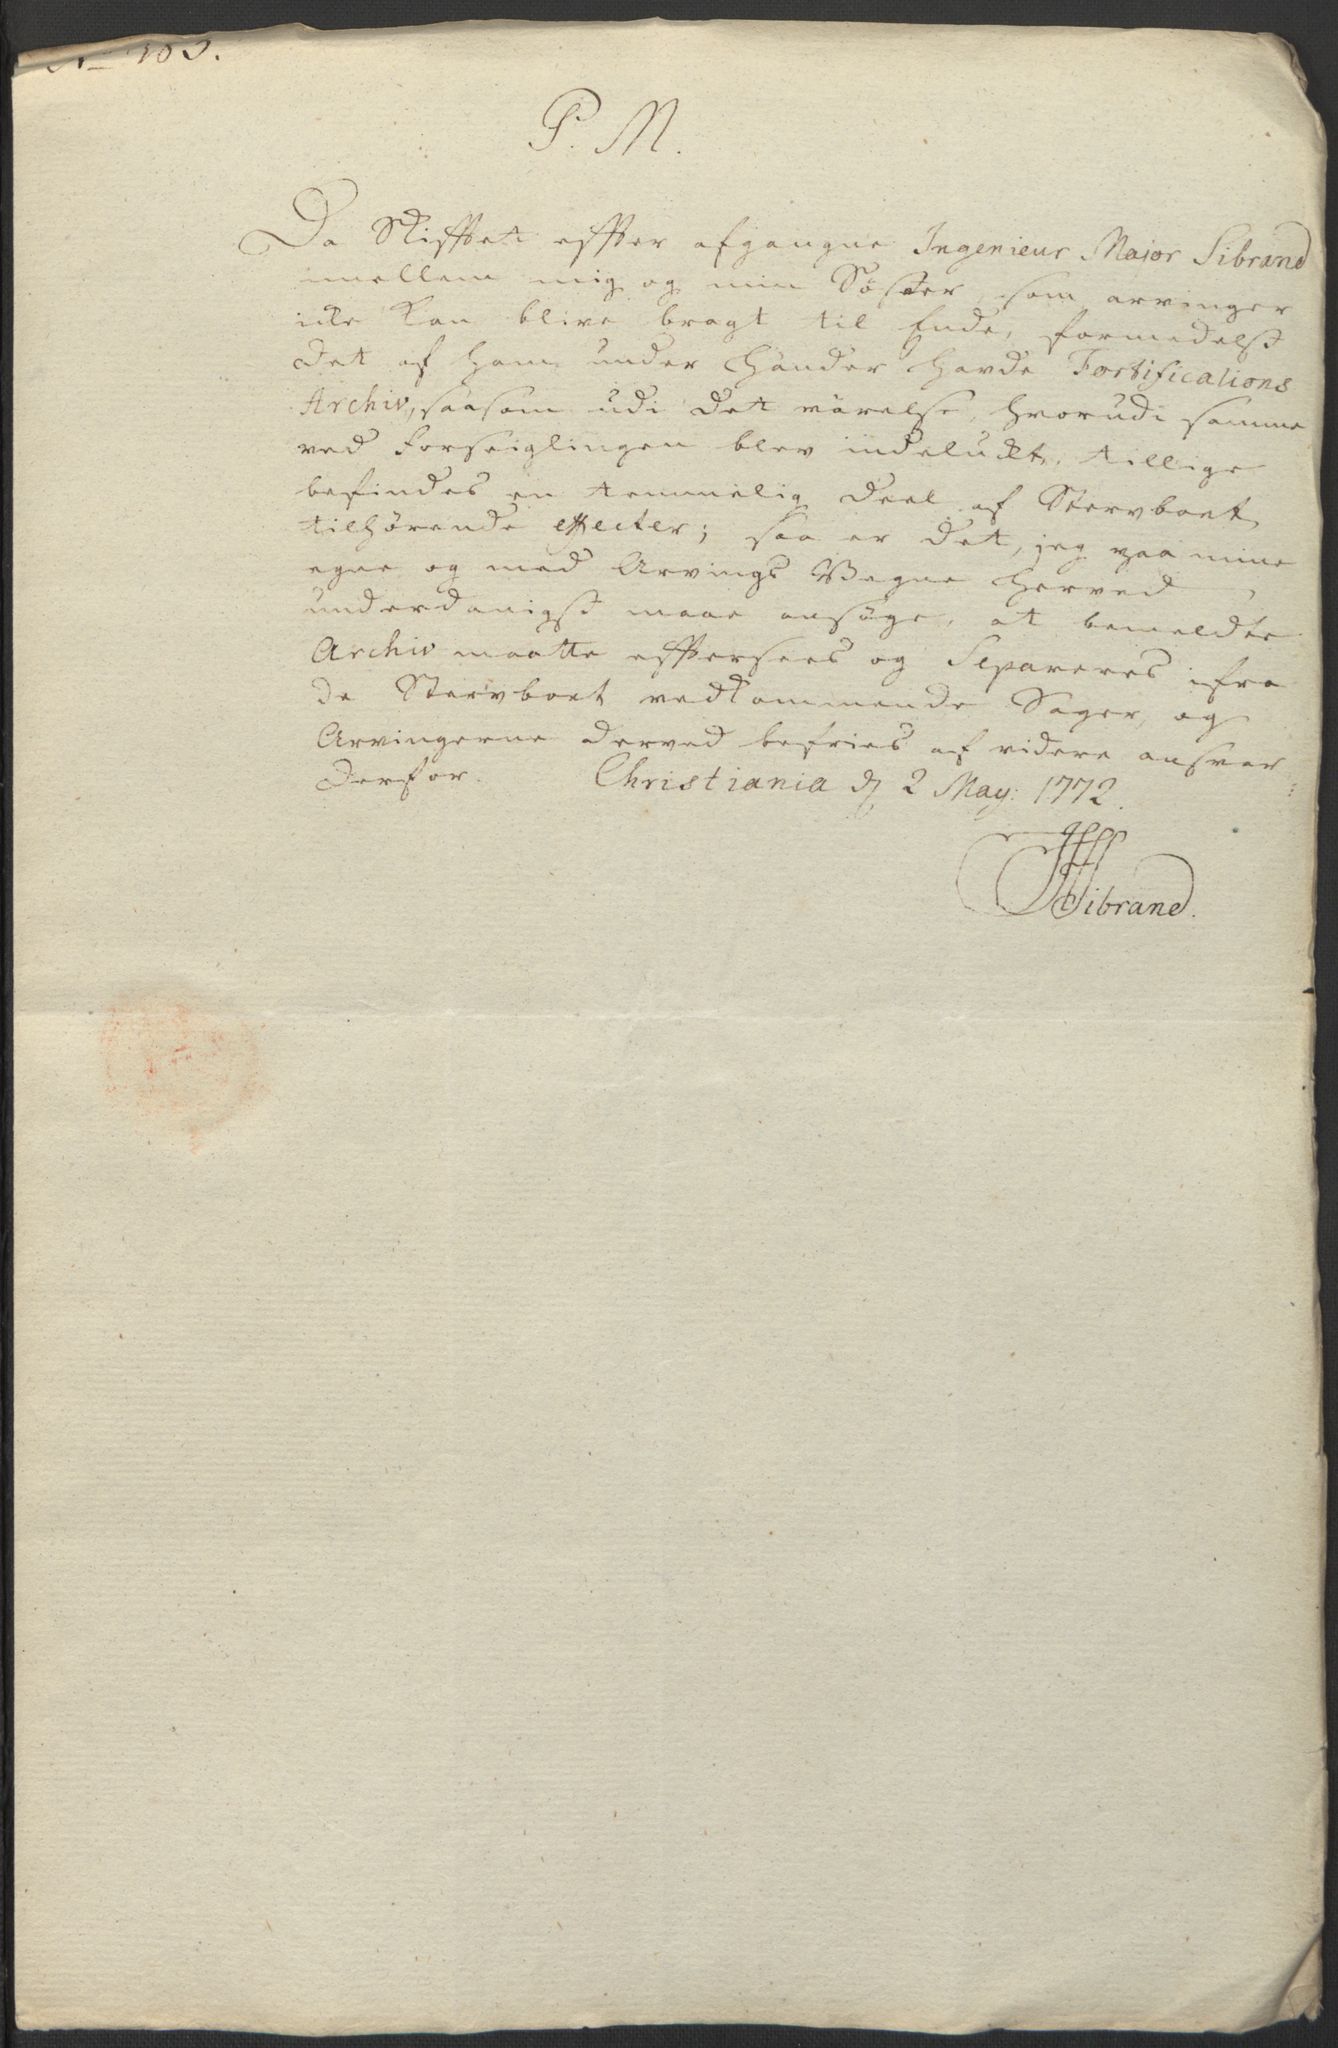 No 103.
P. M.
Da Skifftet effter afgangne Ingenieur Major Sibrand
imellem mig og min Söster, som arvinger
icke kan blive bragt til Ende, formedelst
det af ham under Händer havde Fortifications
Archiv, saasom udi det värelse, hvorudi samme
ved Forseiglingen blev indelukt, tillige
befindes en temmelig deel af Stervboet
tilhørende effecter; saa er det, jeg paa mine
egne og med Arvings Vegne herved
underdanigst maae ansöge, at bemeldte
Archiv maatte efftersees og Separeres ifra
de Stervboet vedkommende Sager, og
Arvingerne derved befries af videre ansvar
derfor. Christiania d. 2 May: 1772.
Sibrand.